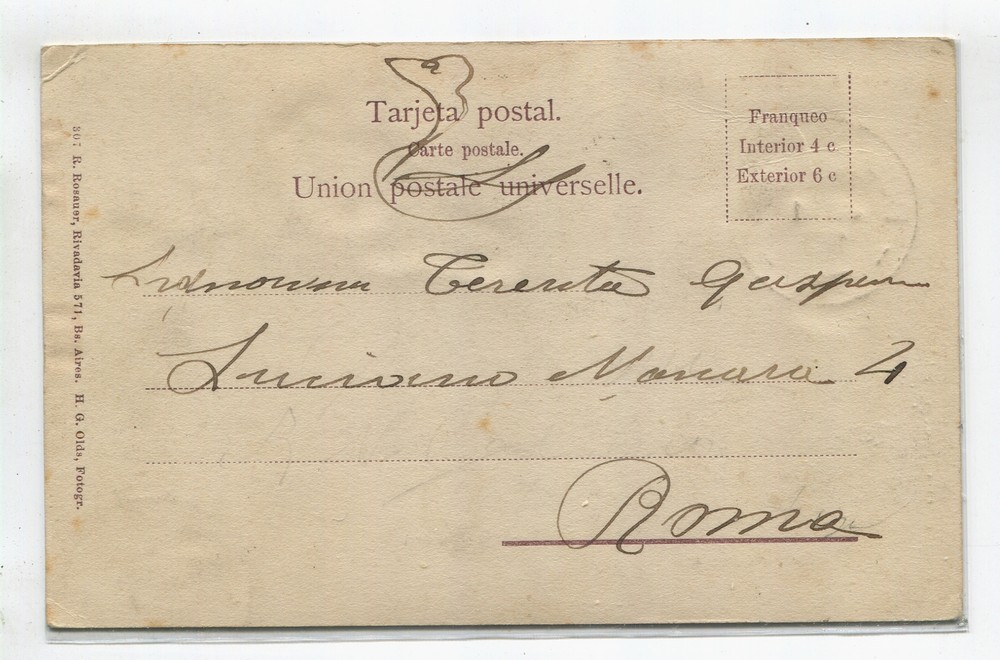 Tarjeta postal.
Carte postale.
Union postale universelle.
Franqueo
Interior 4 c
Exterior 6 c
307 R. Rosauer, Rivadavia 571, Bs. Aires. H. G. Olds, Fotogr.
Teresita
Luciano Manara 21
Roma